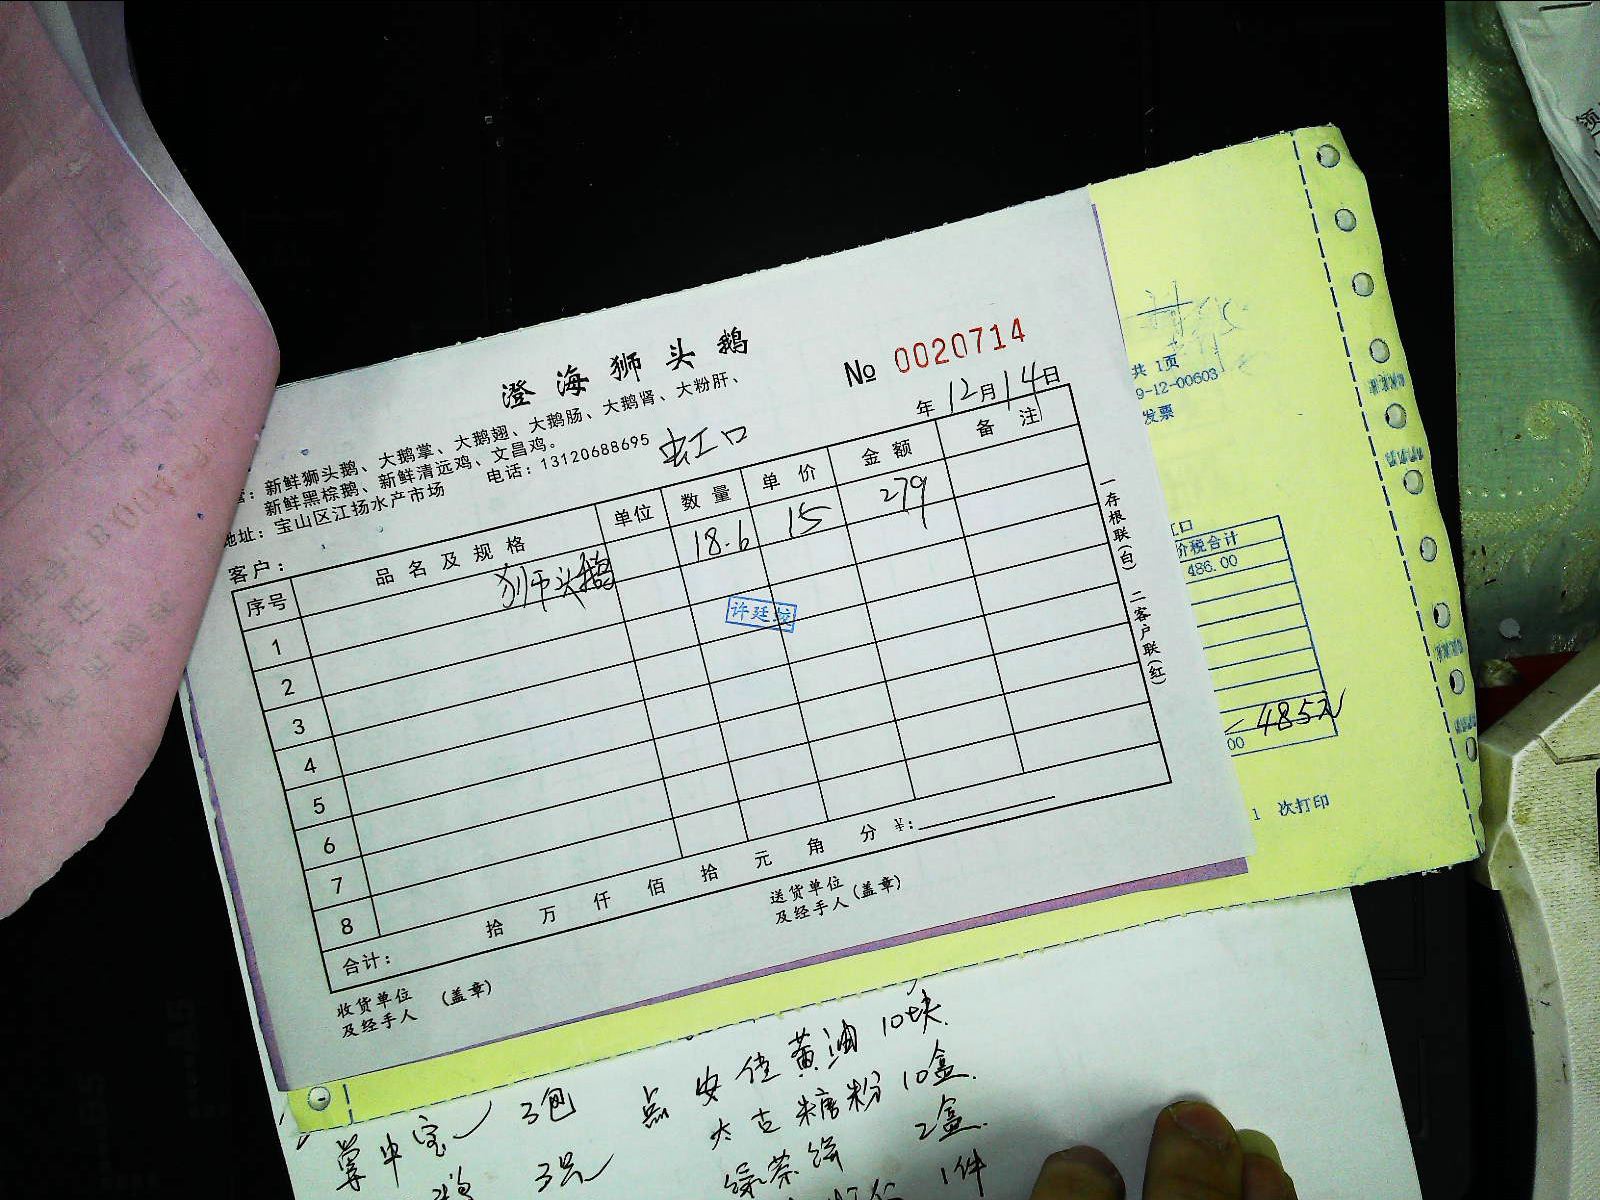 澄海狮头鹅
№ 0020714
：新鲜狮头鹅、大鹅掌、大鹅翅、大鹅肠、大鹅肾、大粉肝、
新鲜黑棕鹅、新鲜清远鸡、文昌鸡。
地址：宝山区江扬水产市场 电话：13120688695
虹口
年12月14日
客户：
序号 品名及规格 单位 数量 单价 金额 备注
1 狮头鹅 18.6 15 279
2
3
4
5
6
7
8
许廷
合计： 拾 万 仟 佰 拾 元 角 分 ¥：
收货单位及经手人 (盖章)
送货单位及经手人 (盖章)
一存根联(白) 二客户联(红)
共 1页
9-12-00603
发票
口
价税合计
486.00
485元
00
1 次打印
3包
点 安佳黄油 10块
太古糖粉 10盒
3只
绿茶饼 2盒
1件